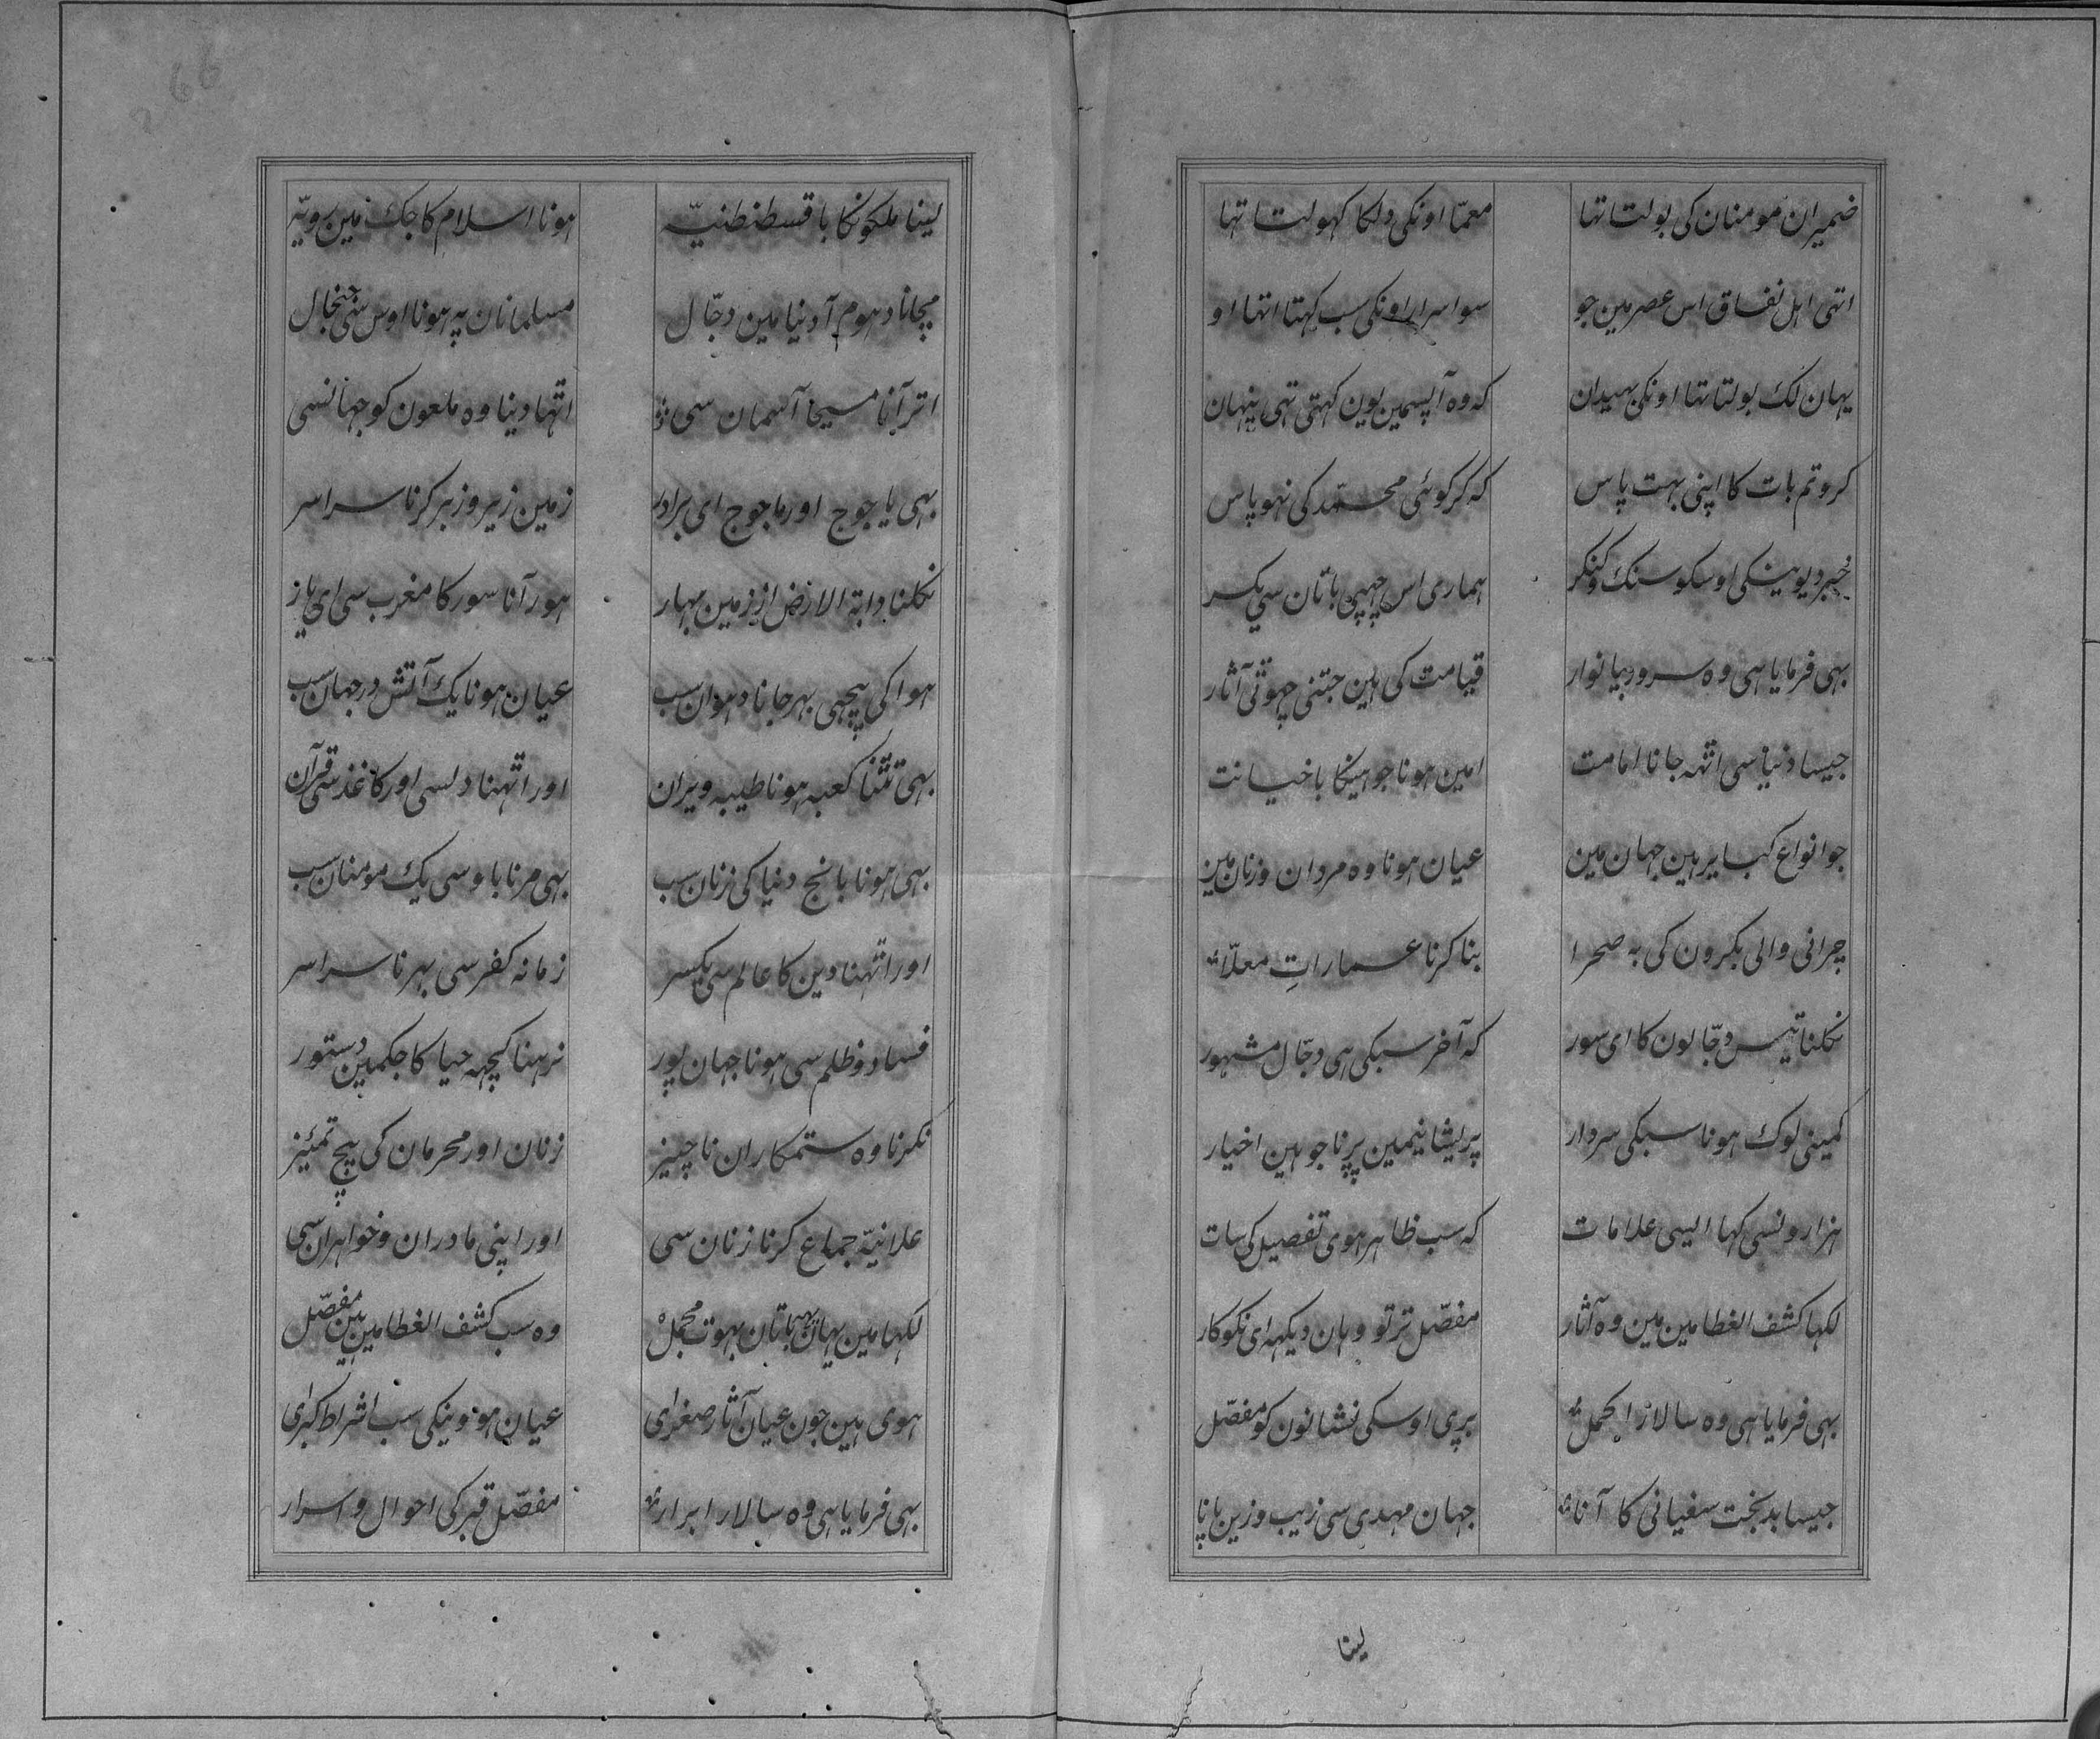 ضمیران مومنان کی بولتا تھا معمّا اونکی دلکا کهولتا تھا
اتهی اہل نفاق اس عصر مین جو سو اسرار اونکی سب کہتا اتھا او
یہان لک بولتا تھا اونکی بهیدان که وہ آپسمین یون کہتی تهی پنہان
کرو تم بات کا اپنی بہت پاس که گر کوئی محمّد کی نہو پاس
خبر دیوینکی اوسکو سنک و کنکر ہماری اس چهپی باتان سی یکسر
بهی فرمایا ہی وہ سرور بانوار قیامت کی ہین جتنی چهوتی آثار
جیسا دنیا سی اتهہ جانا امامت امین ہونا جو ہینکا با خیانت
جو انواع کبایر ہین جہان مین عیان ہونا وہ مردان و زنان مین
چرانی والی بکرون کی به صحرا بنا کرنا عماراتِ معلّا
نکلنا تیس دجّالون کا ای سور که آخر سبکی ہی دجّال مشہور
کمینی لوک ہونا سبکی سردار پریشانیمین پرنا جو ہین اخیار
ہزارونسی کہا ایسی علامات که سب ظاہر ہوی تفصیل کی سات
لکها کشف الغطا مین مین وہ آثار مفصّل تر تو وہان دیکہہ ای نکوکار
بهی فرمایا ہی وہ سالار اجمل بری اوسکی نشانون کو مفصّل
جیسا بدبخت سفیانی کا آنا جہان مہدی سی زیب و زین پانا
لینا
لینا ملکونکا با قسطنطنیّہ ہونا اسلام کا جک مین رویّہ
مچانا دہوم آ دنیا مین دجّال مسلمانان په ہونا اوس سی جنجال
اتر آنا مسیحا آسمان سی اتها دینا وہ ملعون کو جہانسی
بهی یاجوج اور ماجوج ای برادر زمین زیر و زبر کرنا سراسر
نکلنا دابة الارض از زمین بہار ہور آنا سور کا مغرب سی ای یار
ہوا کی پیچهی بهر جانا دہوان سب عیان ہونا یک آتش در جہان سب
بهی تتنا کعبہ ہونا طیبہ ویران اور اتهنا دلسی اور کاغذ سی قرآن
بهی ہونا بانج دنیا کی زنان سب بهی مرنا با وسی یک مومنان سب
اور اتهنا دین کا عالم سی یکسر زمانہ کفر سی بهرنا سراسر
فساد و ظلم سی ہونا جہان پور نرہنا کچهہ حیا کا جکمین دستور
نکرنا وہ ستمکاران ناچیز زنان اور محرمان کی بیچ تمئیز
علانیّہ جماع کرنا زنان سی اور اپنی مادران و خواہران سی
لکها مین یہان یہہ باتان بہوت مجمل وہ سب کشف الغطا مین ہین مفصّل
ہوی ہین جون عیان آثار صغرای عیان ہووینکی سب اشراط کبرای
بهی فرمایا ہی وہ سالار ابرار مفصّل قبر کی احوال و اسرار